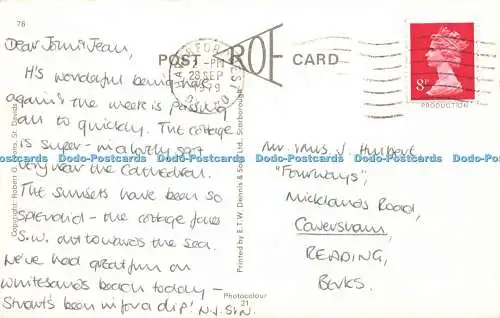 78
Dear John & Jean,
It's wonderful being here
again & the week is passing
far to quickly. The cottage
is super - in a lovely spot
very near the Cathedral.
The sunsets have been so
splendid - the cottage faces
S.W. out towards the sea.
We've had great fun on
Whitesands beach today -
Stuart's been in for a dip!
POST CARD
28 SEP
8P
PRODUCTION
Mr. & Mrs. J. Hulbert
"Fourways",
Micklands Road,
Caversham,
READING,
Berks.
Copyright: Robert O. St. Davids
Printed by E.T.W. Dennis & Sons Ltd., Scarborough
Photocolour
21
Dodo-Postcards Dodo-Postcards Dodo-Postcards Dodo-Postcards Dodo-Postcards